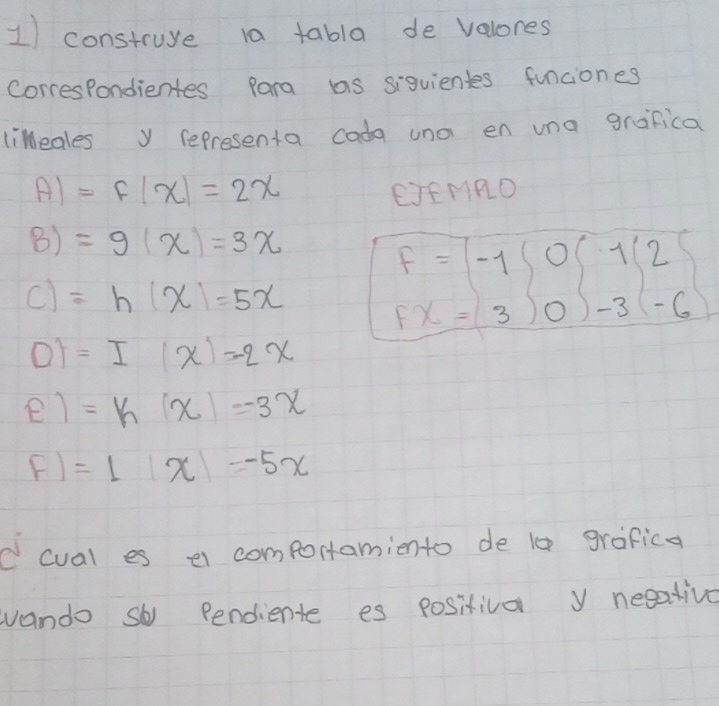 1) construye la tabla de valores
correspondientes para las siguientes funciones
lineales y representa cada una en una gráfica
A) = f(x) = 2x
B) = g(x) = 3x
C) = h(x) = 5x
D) = I(x) = -2x
E) = K(x) = -3x
F) = l(x) = -5x
EJEMPLO
F = -1 0 1 2
FX = 3 0 -3 -6
cual es el comportamiento de la gráfica
cuando su pendiente es positiva y negativa